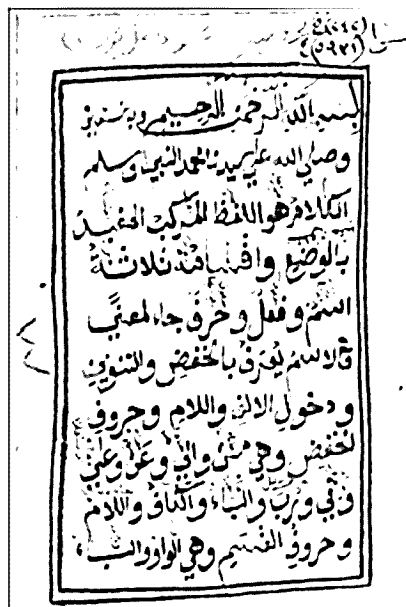 بسم الله الرحمن الرحيم وبه نستعين
وصلى الله على سيدنا محمد النبي وسلم
الكلام هو اللفظ المركب المفيد
بالوضع واقسامه ثلاثة
اسم وفعل وحرف جاء لمعنى
فالاسم يعرف بالخفض والتنوين
ودخول الالف واللام وحروف
الخفض وهي من والى وعن وعلى
وفي ورب والباء والكاف واللام
وحروف القسم وهي الواو والباء